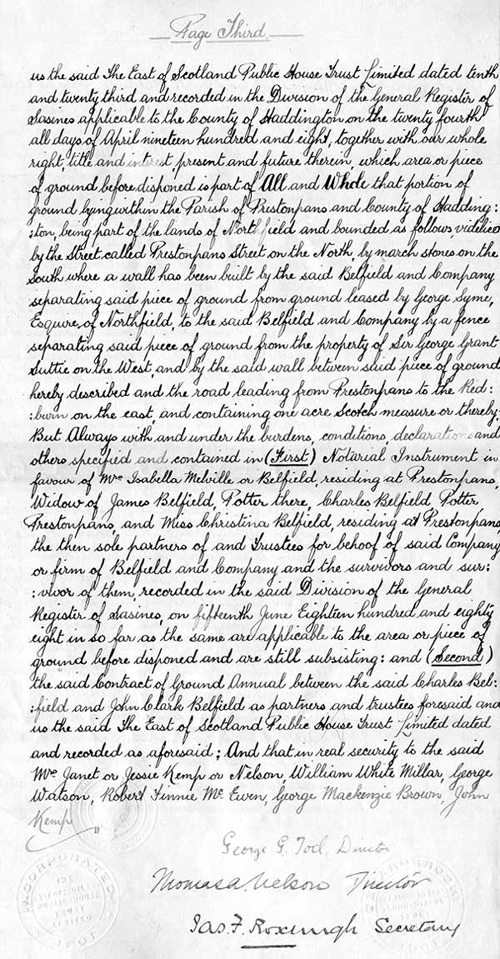 Page Third.
us the said The East of Scotland Public House Trust Limited dated tenth
and twenty third and recorded in the Division of the General Register of
Sasines applicable to the County of Haddington on the twenty fourth
all days of April nineteen hundred and eight, together with our whole
right, title and interest, present and future therein, which area or piece
of ground before disponed is part of All and Whole that portion of
ground lying within the Parish of Prestonpans and County of Hadding:
:ton, being part of the lands of Northfield and bounded as follows, videlicet
by the Street called Prestonpans Street on the North, by march stones on the
South where a wall has been built by the said Belfield and Company
separating said piece of ground from ground leased by George Syme,
Esquire, of Northfield, to the said Belfield and Company by a fence
separating said piece of ground from the property of Sir George Grant
Suttie on the West, and by the said wall between said piece of ground
hereby described and the road leading from Prestonpans to the Red:
:burn on the east, and containing one acre Scotch measure or thereby:
But Always with and under the burdens, conditions, declarations and
others specified and contained in (First) Notarial Instrument in
favour of Mrs Isabella Melville or Belfield, residing at Prestonpans,
Widow of James Belfield, Potter there, Charles Belfield, Potter,
Prestonpans, and Miss Christina Belfield, residing at Prestonpans,
the then sole partners of and Trustees for behoof of said Company
or firm of Belfield and Company and the survivors and sur:
:vivor of them, recorded in the said Division of the General
Register of Sasines, on fifteenth June Eighteen hundred and eighty
eight in so far as the same are applicable to the area or piece of
ground before disponed and are still subsisting: and (Second)
the said Contract of Ground Annual between the said Charles Bel:
:field and John Clark Belfield as partners and trustees foresaid and
us the said The East of Scotland Public House Trust Limited dated
and recorded as aforesaid; And that in real security to the said
Mrs Janet or Jessie Kemp or Nelson, William White Millar, George
Watson, Robert Finnie Mc Ewen, George Mackenzie Brown, John
Kemp
George G. Tod, Director
Thomas A. Nelson Director
Jas. F. Roxburgh Secretary
INCORPORATED
1901